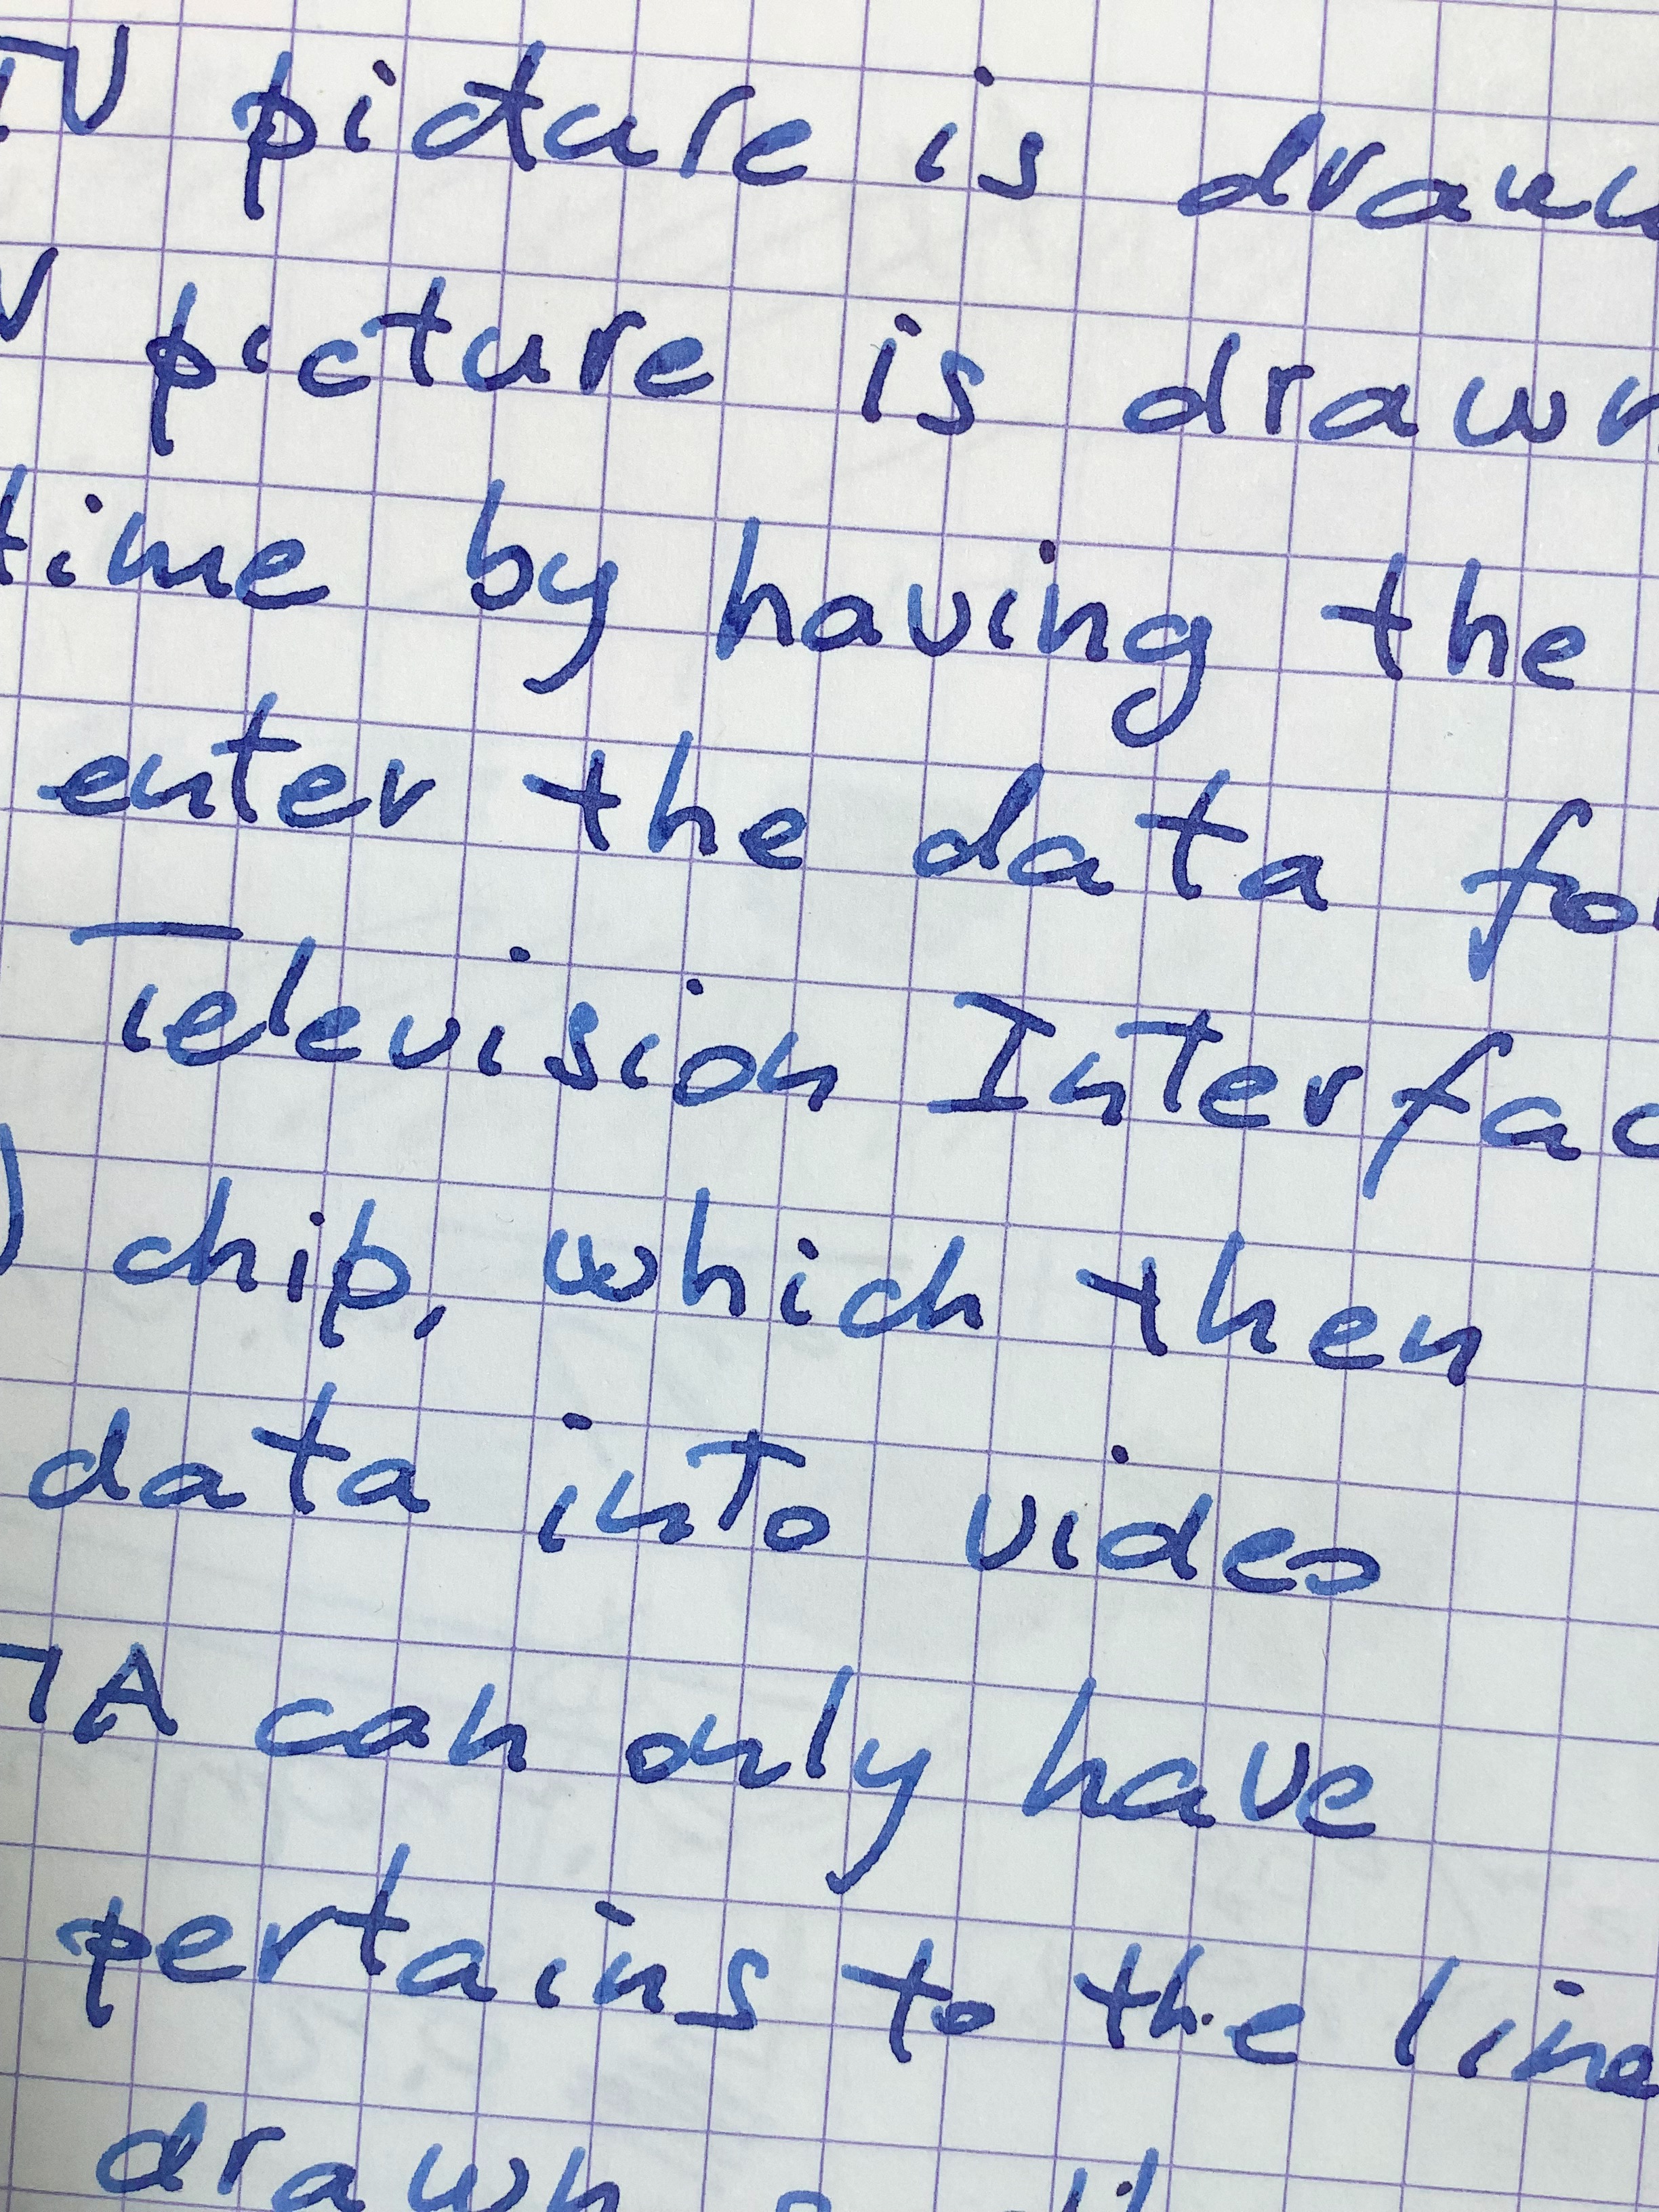 TV picture is drawn
V picture is drawn
time by having the
enter the data for
Television Interfac
) chip, which then
data into video
IA can only have
pertains to the line
drawn